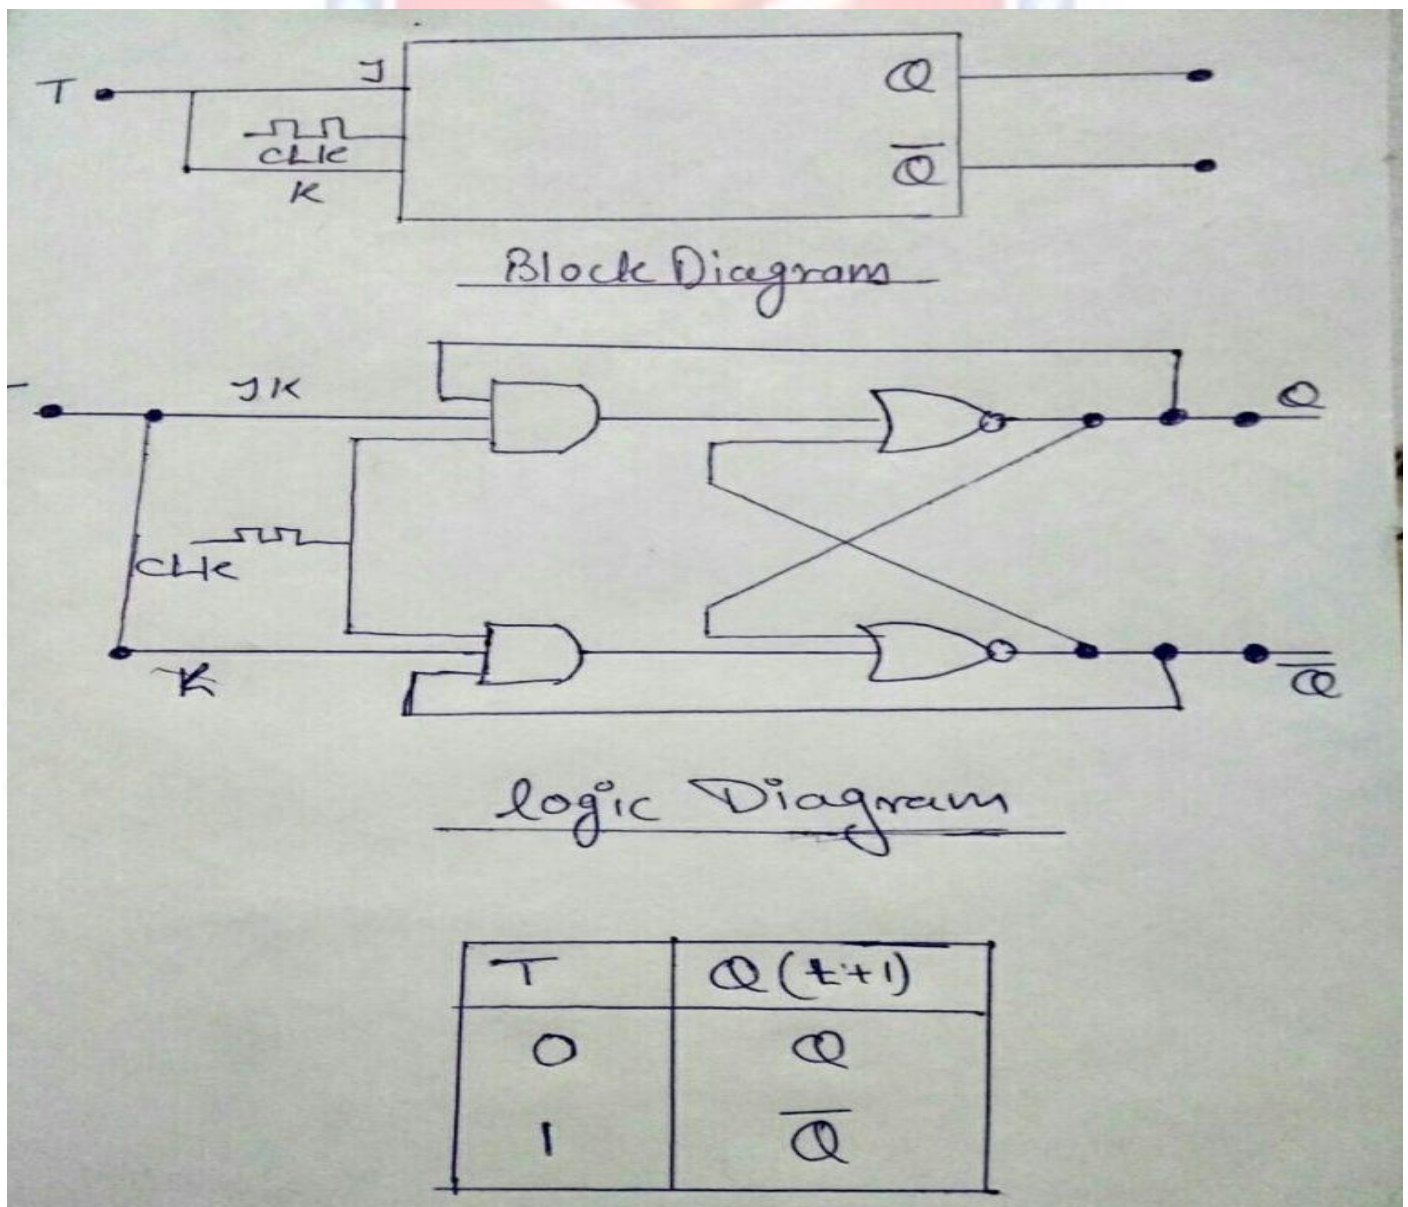 T J Q
CLK
K Q̅
Block Diagram
JK Q
CLK
K Q̅
logic Diagram
T Q(t+1)
0 Q
1 Q̅